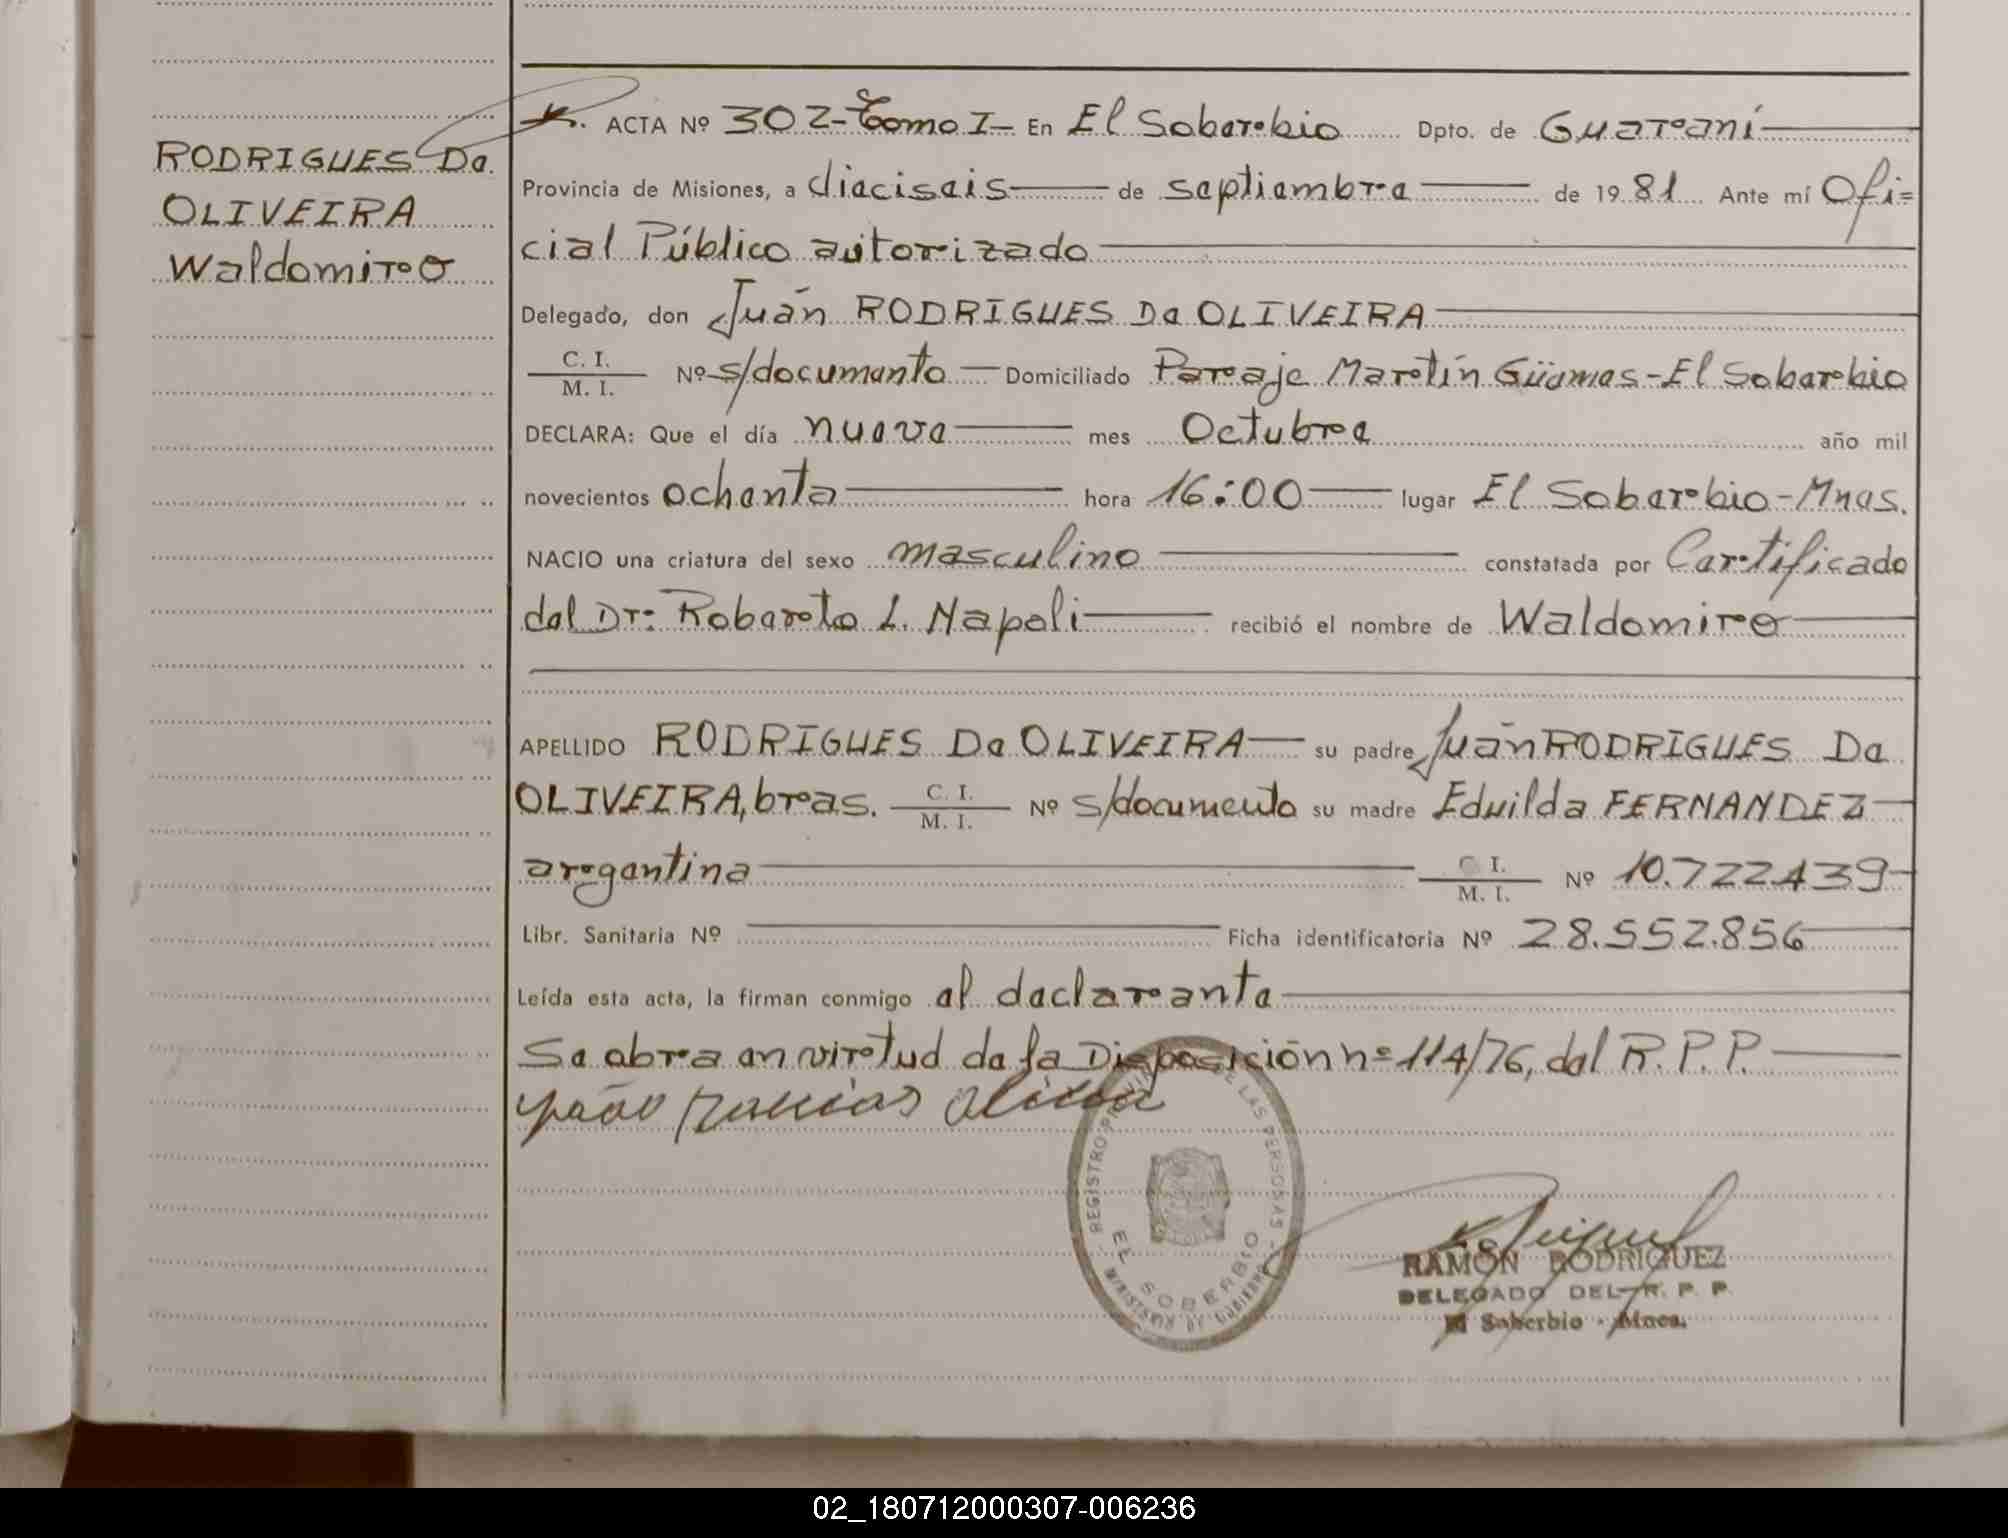 RODRIGUES Da
OLIVEIRA
Waldomiro
ACTA Nº 302-Tomo I- En El Soberbio Dpto. de Guaraní
Provincia de Misiones, a dieciseis de septiembre de 1981 Ante mí Ofi=
cial Público autorizado
Delegado, don Juán RODRIGUES Da OLIVEIRA
C. I.
M. I. Nº s/documento Domiciliado Paraje Martín Güemes-El Soberbio
DECLARA: Que el día nueve mes Octubre año mil
novecientos ochenta hora 16:00 lugar El Soberbio-Mnes.
NACIO una criatura del sexo masculino constatada por Certificado
del Dr: Roberto L. Napoli recibió el nombre de Waldomiro
APELLIDO RODRIGUES Da OLIVEIRA su padre Juán RODRIGUES Da
OLIVEIRA, bras. C. I. M. I. Nº s/documento su madre Eduilda FERNANDEZ
argentina C. I. M. I. Nº 10.722.439
Libr. Sanitaria Nº Ficha identificatoria Nº 28.552.856
Leída esta acta, la firman conmigo el declarante
Se abre en virtud de la Disposición nº 114/76, del R.P.P.
REGISTRO PROVINCIAL DE LAS PERSONAS
EL SOBERBIO
MINISTERIO DE GOBIERNO
RAMÓN RODRIGUEZ
DELEGADO DEL R. P. P.
El Soberbio - Mnes.
02_180712000307-006236